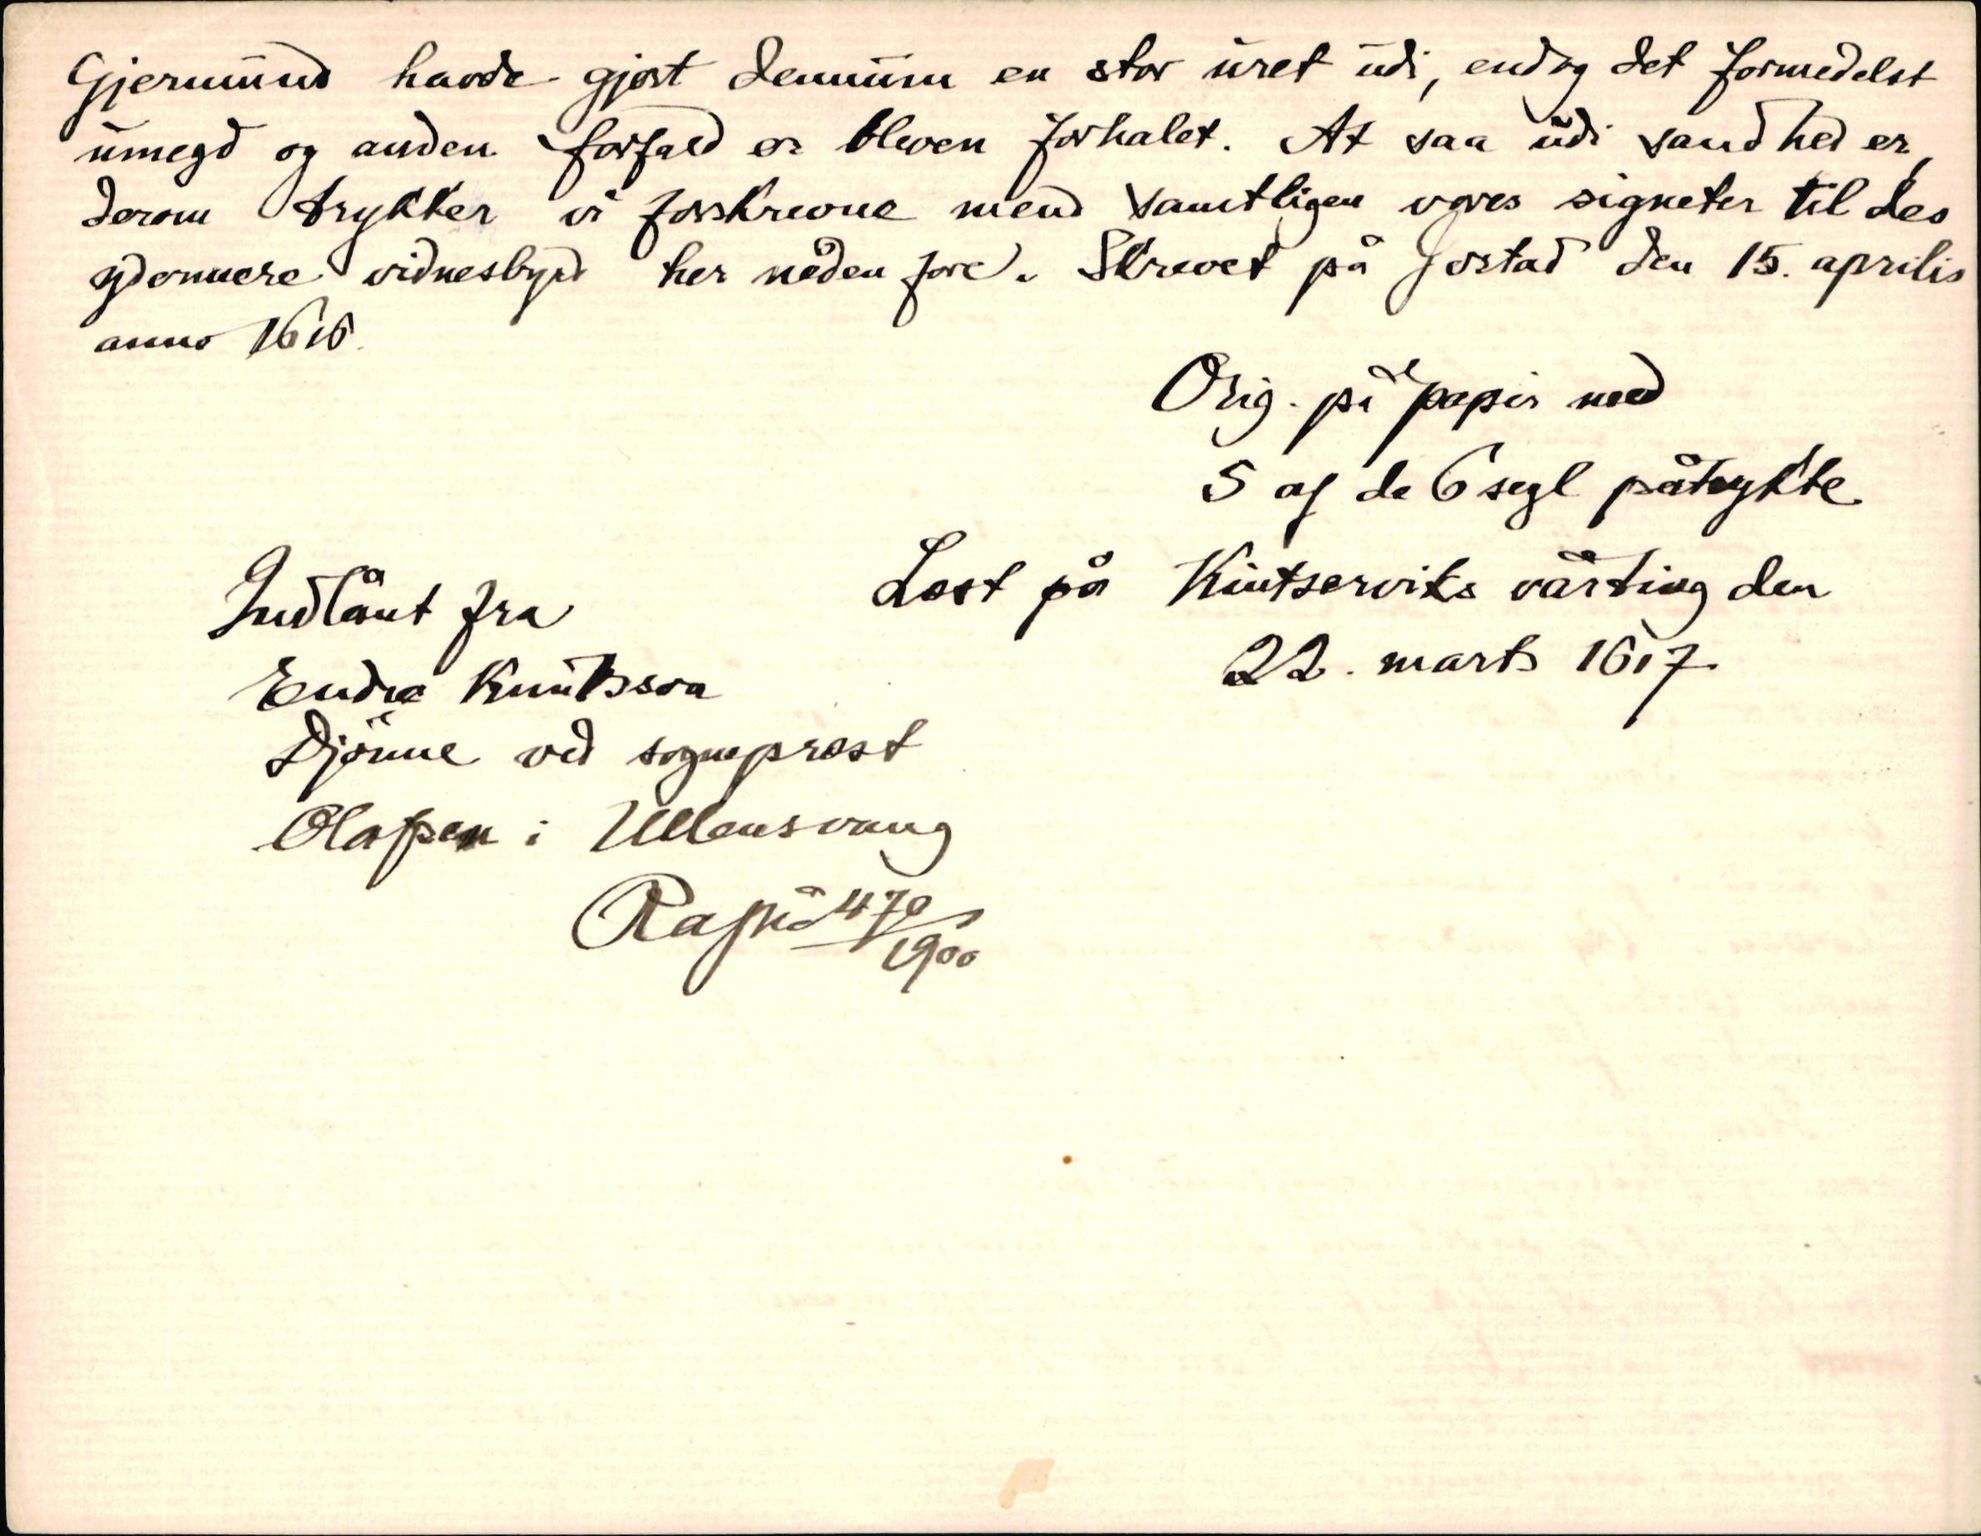 Gjermund havde gjort dennum en stor uret udi, endog det formedelst
umegd og anden forfald er bleven forhalet. At saa udi sandhed er,
derom trykker vi forskrevne mend samtligen vores signeter til des
ydermere vidnesbyrd her neden fore. Skrevet på Jostad den 15. aprilis
anno 1616.
Orig. på papir med
5 af de 6 segl påtrykte
Læst på Kintserviks vårting den
22. marts 1617
Indlånt fra
Endre Knutsson
Djönne ved sogneprest
Olafsen i Ullensvang
Ra 470
1900